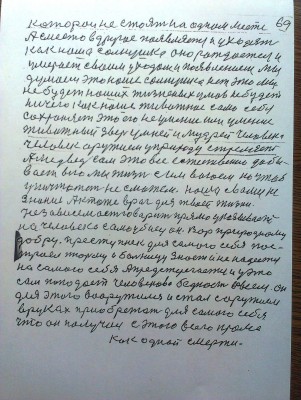 69
которой не стоят на одном месте
А место в другое появляется и уходят
как наша солнушка оно рождается и
умерает своим уходом и появлением. Мы
думаем это наше солнушка нет этому
не будет наших жизненых умов не будет
ничего как наше животное само себя
сохраняет это его не умение или умение
животный зверь умней и мудрей человека
человек оружием у природу стреляет
А медведь сам это все естественно добы-
вает его мы
уничтожет не сможем. наша своим не
знание Ан тоже враг для твоей жизни.
независемость говорит прямо указывает
на человека самоубиец он. Вор природному
добру. преступник для самого себя пос-
троел тюрму и больницу Знает и не надеется
на самого себя А предстрегается и у это
сам попадает человеково бедность овсем. он
для этого вооружился и стал с оружием
в руках приобретат для самого себя
что он получил с этого всего кроме
как одной смерти.